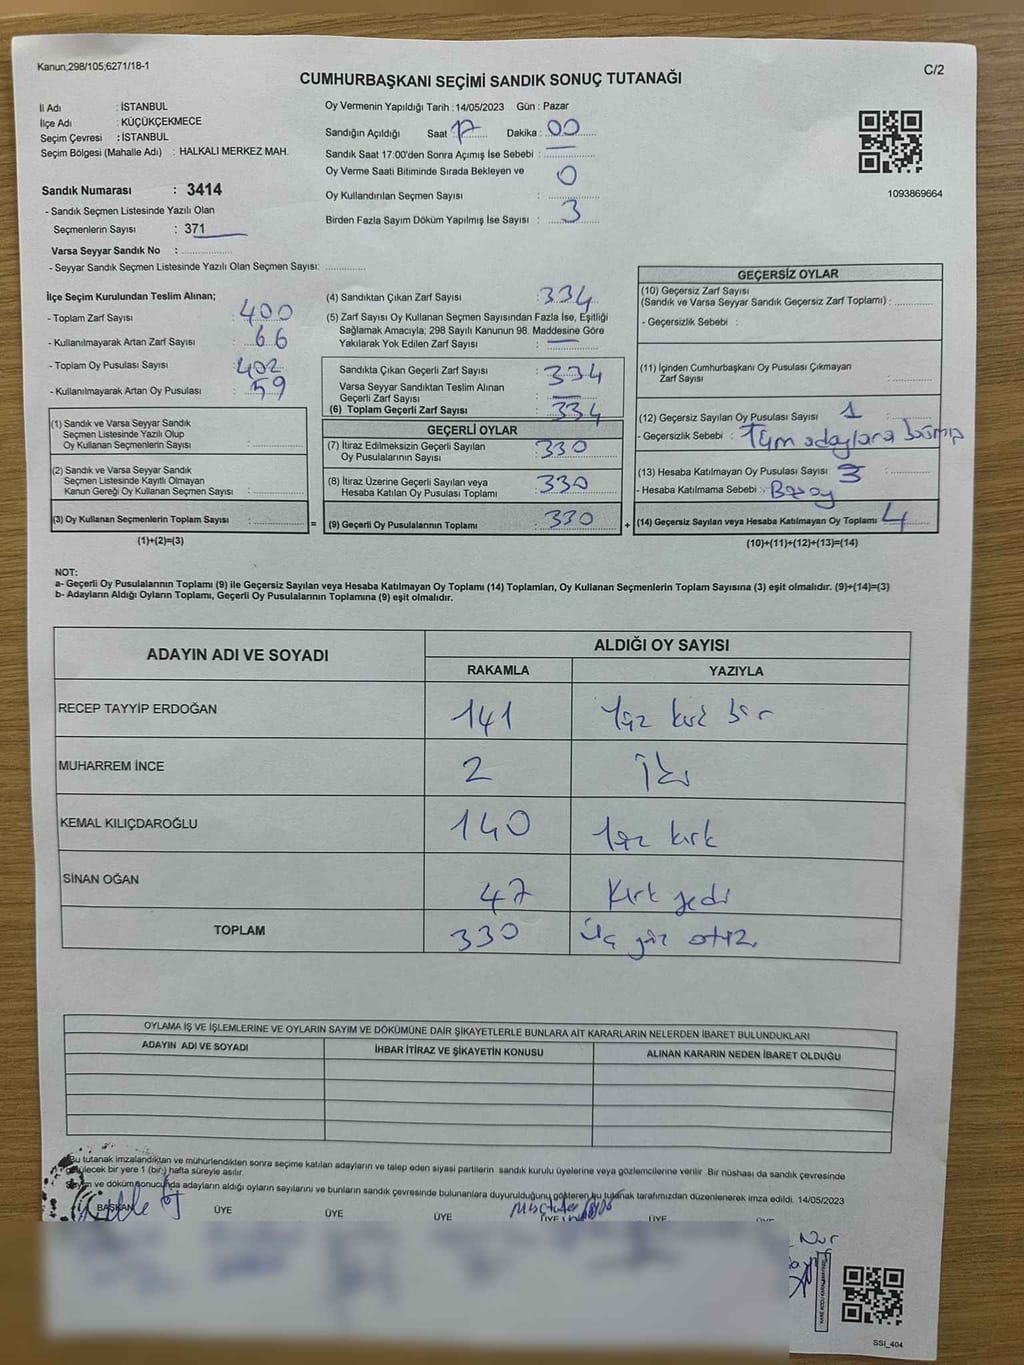 Kanun;298/105;6271/18-1
C/2
CUMHURBAŞKANI SEÇİMİ SANDIK SONUÇ TUTANAĞI
İl Adı : İSTANBUL
İlçe Adı : KÜÇÜKÇEKMECE
Seçim Çevresi : İSTANBUL
Seçim Bölgesi (Mahalle Adı) : HALKALI MERKEZ MAH.
Sandık Numarası : 3414
- Sandık Seçmen Listesinde Yazılı Olan
Seçmenlerin Sayısı : 371
Varsa Seyyar Sandık No :
- Seyyar Sandık Seçmen Listesinde Yazılı Olan Seçmen Sayısı:
Oy Vermenin Yapıldığı Tarih : 14/05/2023 Gün : Pazar
Sandığın Açıldığı Saat : 17 Dakika : 00
Sandık Saat 17:00'den Sonra Açımış İse Sebebi : —
Oy Verme Saati Bitiminde Sırada Bekleyen ve
Oy Kullandırılan Seçmen Sayısı : 0
Birden Fazla Sayım Döküm Yapılmış İse Sayısı : 3
1093869664
İlçe Seçim Kurulundan Teslim Alınan;
- Toplam Zarf Sayısı : 400
- Kullanılmayarak Artan Zarf Sayısı : 66
- Toplam Oy Pusulası Sayısı : 402
- Kullanılmayarak Artan Oy Pusulası : 59
(1) Sandık ve Varsa Seyyar Sandık
Seçmen Listesinde Yazılı Olup
Oy Kullanan Seçmenlerin Sayısı :
(2) Sandık ve Varsa Seyyar Sandık
Seçmen Listesinde Kayıtlı Olmayan
Kanun Gereği Oy Kullanan Seçmen Sayısı :
(3) Oy Kullanan Seçmenlerin Toplam Sayısı :
(1)+(2)=(3)
(4) Sandıktan Çıkan Zarf Sayısı : 334
(5) Zarf Sayısı Oy Kullanan Seçmen Sayısından Fazla İse, Eşitliği
Sağlamak Amacıyla; 298 Sayılı Kanunun 98. Maddesine Göre
Yakılarak Yok Edilen Zarf Sayısı : —
Sandıkta Çıkan Geçerli Zarf Sayısı : 334
Varsa Seyyar Sandıktan Teslim Alınan
Geçerli Zarf Sayısı : —
(6) Toplam Geçerli Zarf Sayısı : 334
GEÇERLİ OYLAR
(7) İtiraz Edilmeksizin Geçerli Sayılan
Oy Pusulalarının Sayısı : 330
(8) İtiraz Üzerine Geçerli Sayılan veya
Hesaba Katılan Oy Pusulası Toplamı : 330
= (9) Geçerli Oy Pusulalarının Toplamı : 330 +
GEÇERSİZ OYLAR
(10) Geçersiz Zarf Sayısı
(Sandık ve Varsa Seyyar Sandık Geçersiz Zarf Toplamı) :
- Geçersizlik Sebebi :
(11) İçinden Cumhurbaşkanı Oy Pusulası Çıkmayan
Zarf Sayısı :
(12) Geçersiz Sayılan Oy Pusulası Sayısı : 1
- Geçersizlik Sebebi : Tüm adaylara basmış
(13) Hesaba Katılmayan Oy Pusulası Sayısı : 3
- Hesaba Katılmama Sebebi : Boş oy
(14) Geçersiz Sayılan veya Hesaba Katılmayan Oy Toplamı : 4
(10)+(11)+(12)+(13)=(14)
NOT:
a- Geçerli Oy Pusulalarının Toplamı (9) ile Geçersiz Sayılan veya Hesaba Katılmayan Oy Toplamı (14) Toplamları, Oy Kullanan Seçmenlerin Toplam Sayısına (3) eşit olmalıdır. (9)+(14)=(3)
b- Adayların Aldığı Oyların Toplamı, Geçerli Oy Pusulalarının Toplamına (9) eşit olmalıdır.
ADAYIN ADI VE SOYADI ALDIĞI OY SAYISI
RAKAMLA YAZIYLA
RECEP TAYYİP ERDOĞAN 141 Yüz kırk bir
MUHARREM İNCE 2 İki
KEMAL KILIÇDAROĞLU 140 Yüz kırk
SİNAN OĞAN 47 Kırk yedi
TOPLAM 330 Üç yüz otuz
OYLAMA İŞ VE İŞLEMLERİNE VE OYLARIN SAYIM VE DÖKÜMÜNE DAİR ŞİKAYETLERLE BUNLARA AİT KARARLARIN NELERDEN İBARET BULUNDUKLARI
ADAYIN ADI VE SOYADI İHBAR İTİRAZ VE ŞİKAYETİN KONUSU ALINAN KARARIN NEDEN İBARET OLDUĞU
Bu tutanak imzalandıktan ve mühürlendikten sonra seçime katılan adayların ve talep eden siyasi partilerin sandık kurulu üyelerine veya gözlemcilerine verilir. Bir nüshası da sandık çevresinde
bir yere 1 (bir) hafta süreyle asılır.
ve döküm sonucunda adayların aldığı oyların sayılarını ve bunların sandık çevresinde bulunanlara duyurulduğunu gösteren bu tutanak tarafımızdan düzenlenerek imza edildi. 14/05/2023
BAŞKAN ÜYE ÜYE ÜYE ÜYE ÜYE ÜYE
Nur
SSİ_404